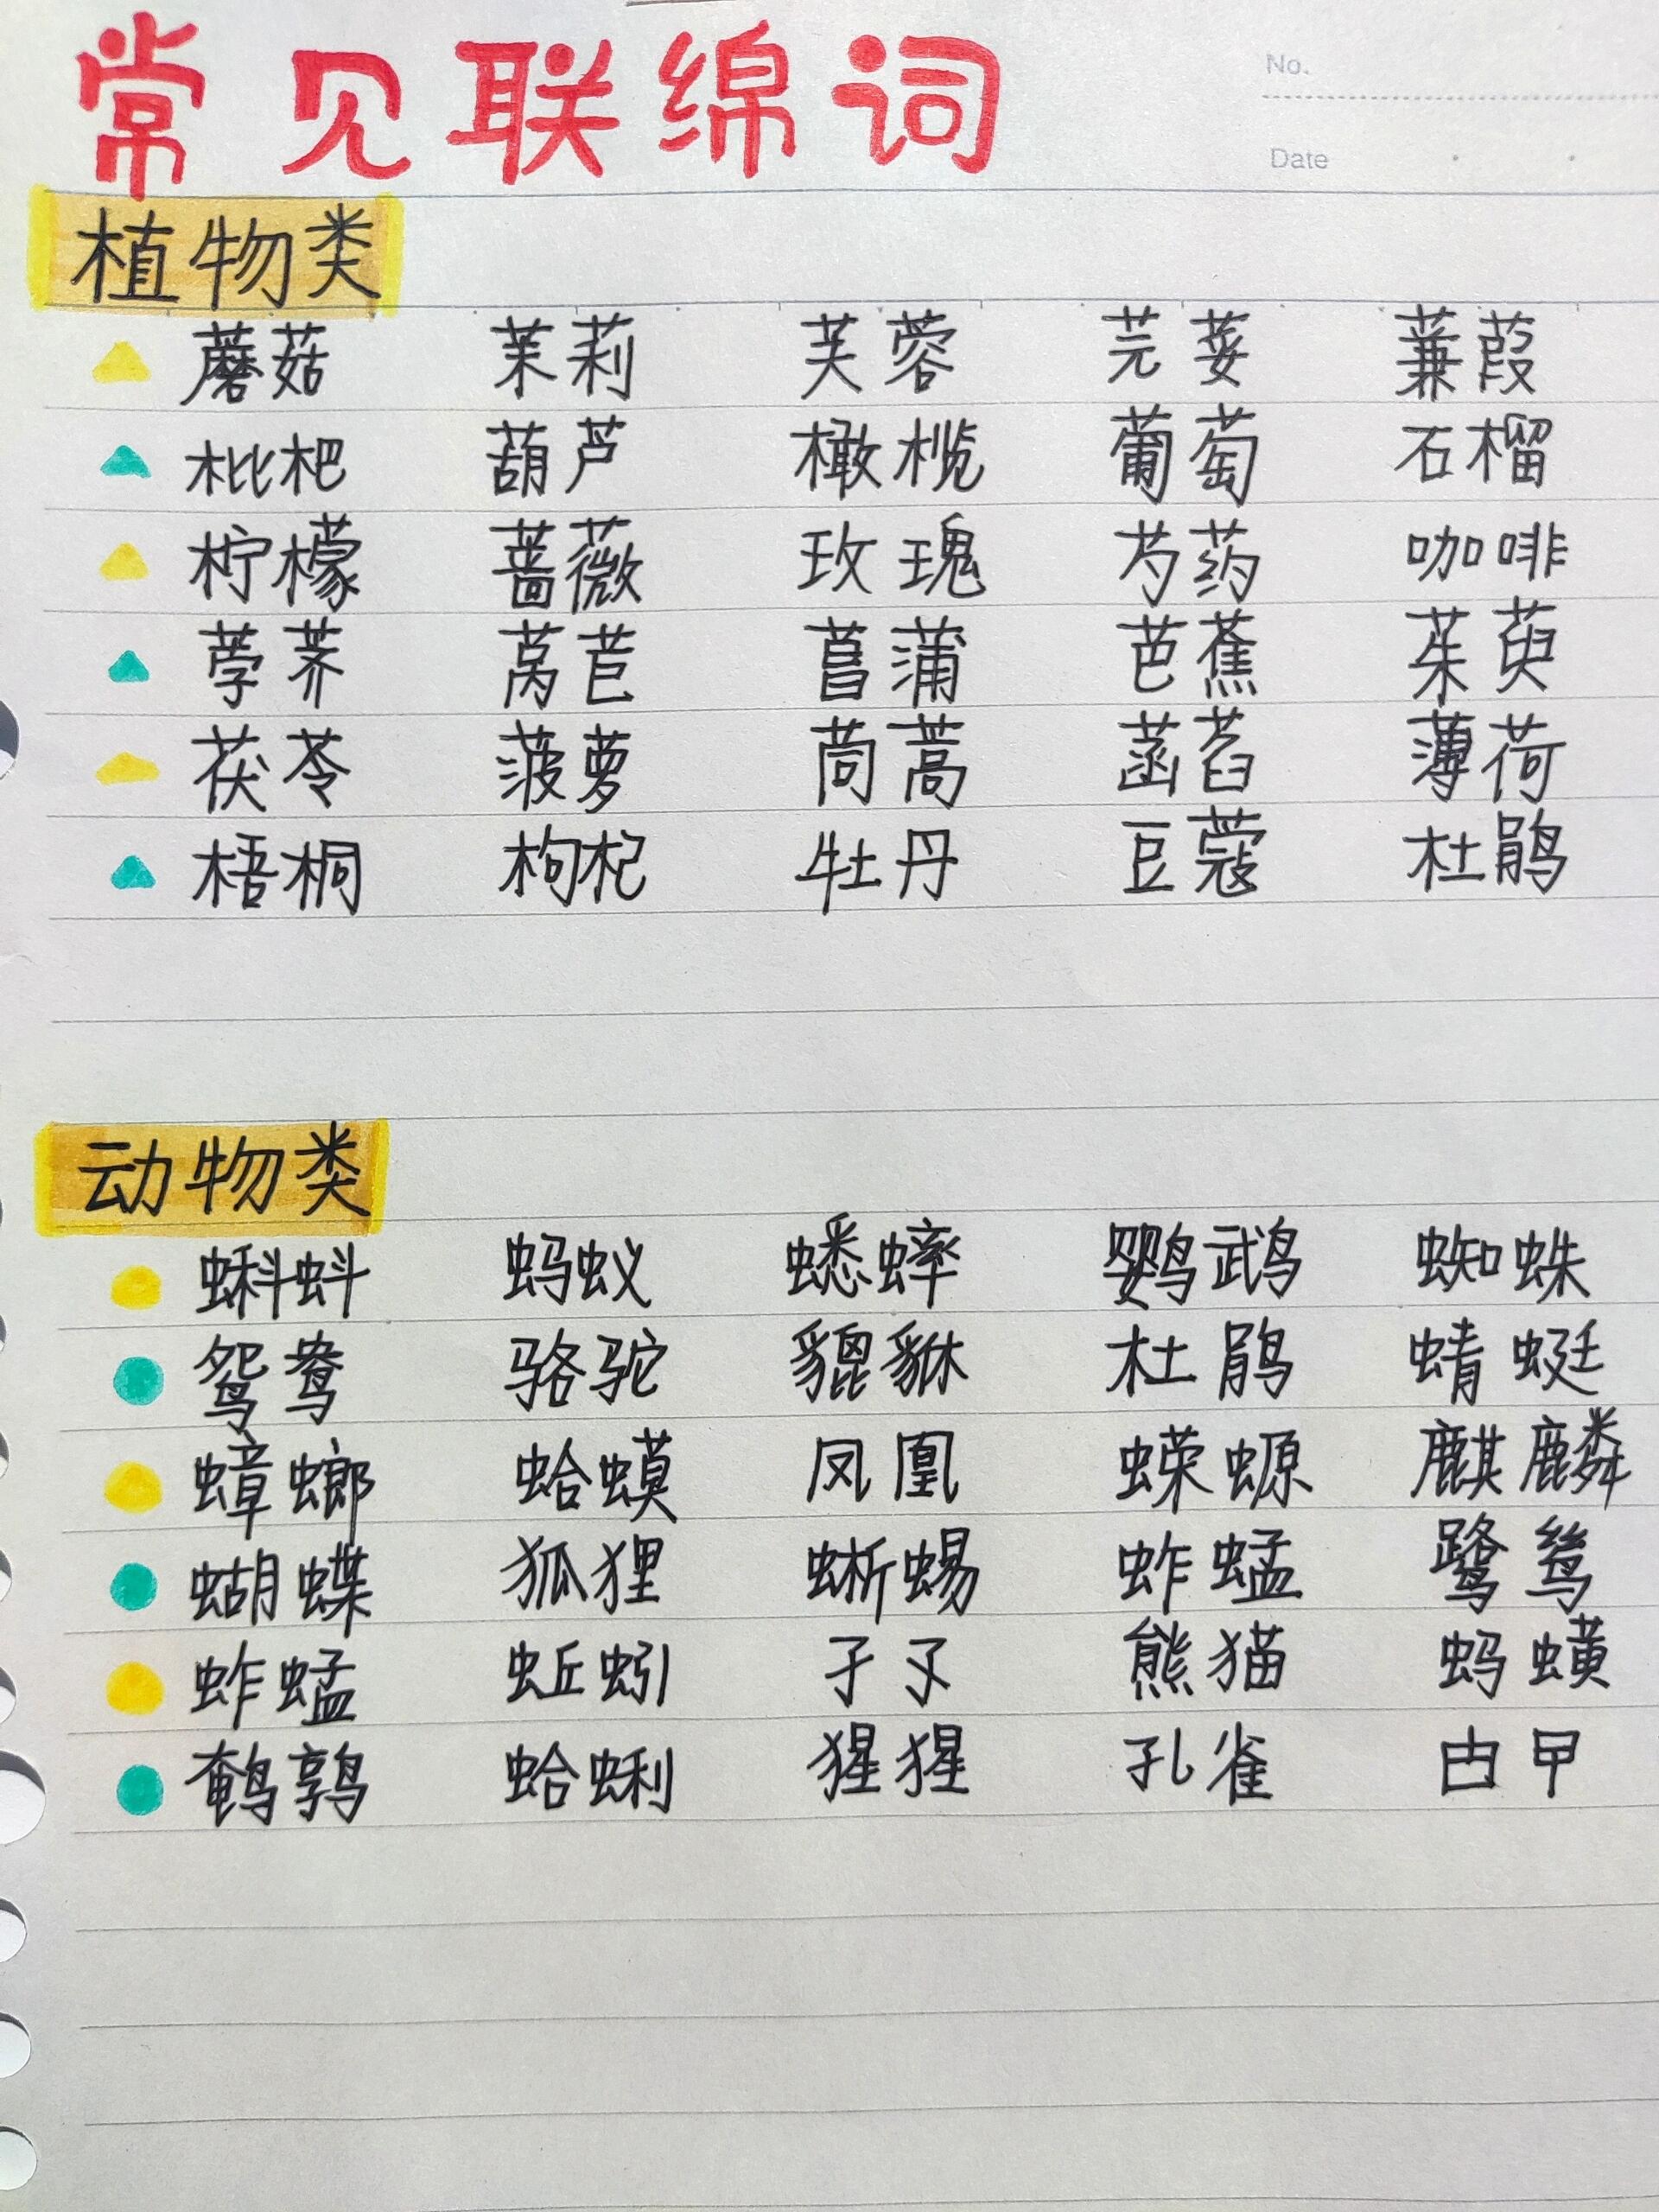 常见联绵词
No.
Date
植物类
蘑菇 茉莉 芙蓉 芫荽 蒹葭
枇杷 葫芦 橄榄 葡萄 石榴
柠檬 蔷薇 玫瑰 芍药 咖啡
荸荠 莴苣 菖蒲 芭蕉 茱萸
茯苓 菠萝 茼蒿 菡萏 薄荷
梧桐 枸杞 牡丹 豆蔻 杜鹃
动物类
蝌蚪 蚂蚁 蟋蟀 鹦鹉 蜘蛛
鸳鸯 骆驼 貔貅 杜鹃 蜻蜓
蟑螂 蛤蟆 凤凰 蝾螈 麒麟
蝴蝶 狐狸 蜥蜴 蚱蜢 鹭鸶
蚱蜢 蚯蚓 孑孓 熊猫 蚂蟥
鹌鹑 蛤蜊 猩猩 孔雀 甴曱